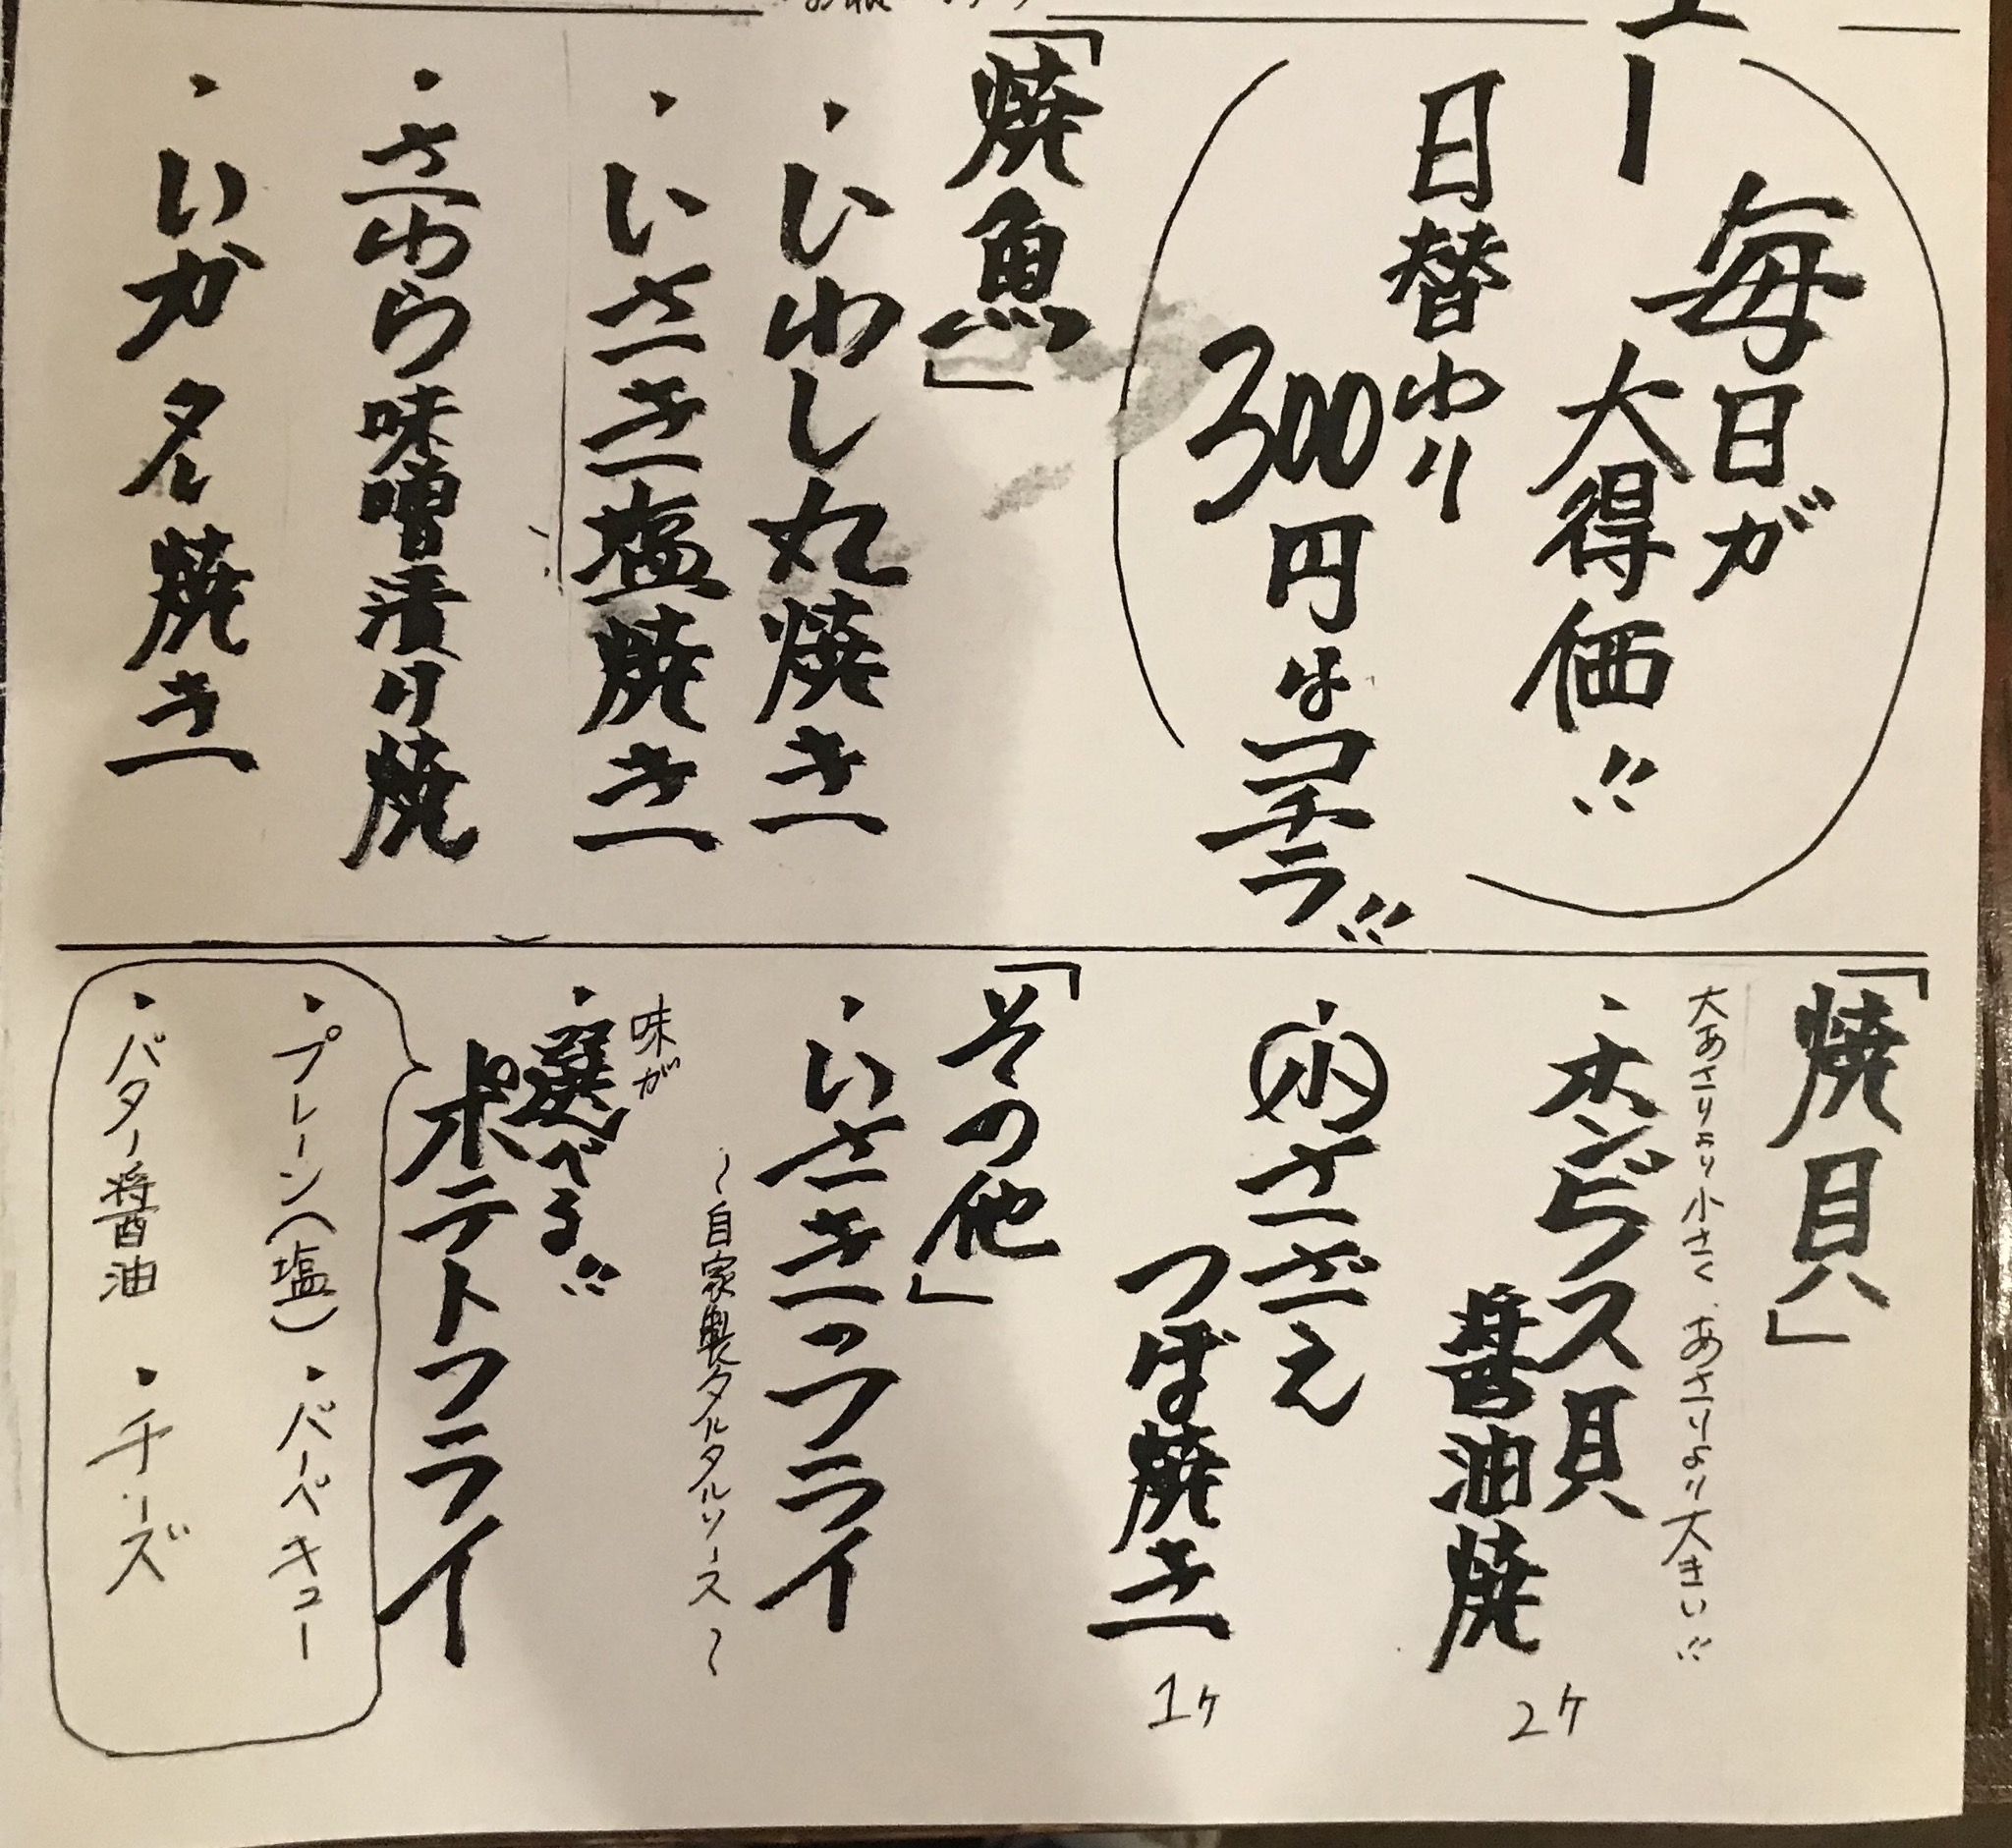 ュー
毎日が
大得価!!
日替わり
300円はコチラ!!
「焼魚」
・いわし丸焼き
・いさき塩焼き
・さわら味噌漬け焼
・いカタレ焼き
「焼貝」
大あさりより小さく、あさりより大きい!!
・ホンビノス貝
醤油焼
2ケ
・小さざえ
つぼ焼き
1ケ
「その他」
・いさきのフライ
〜自家製タルタルソース〜
味が
・選べる!!
ポテトフライ
・プレーン(塩)・バーベキュー
・バター醤油・チーズ